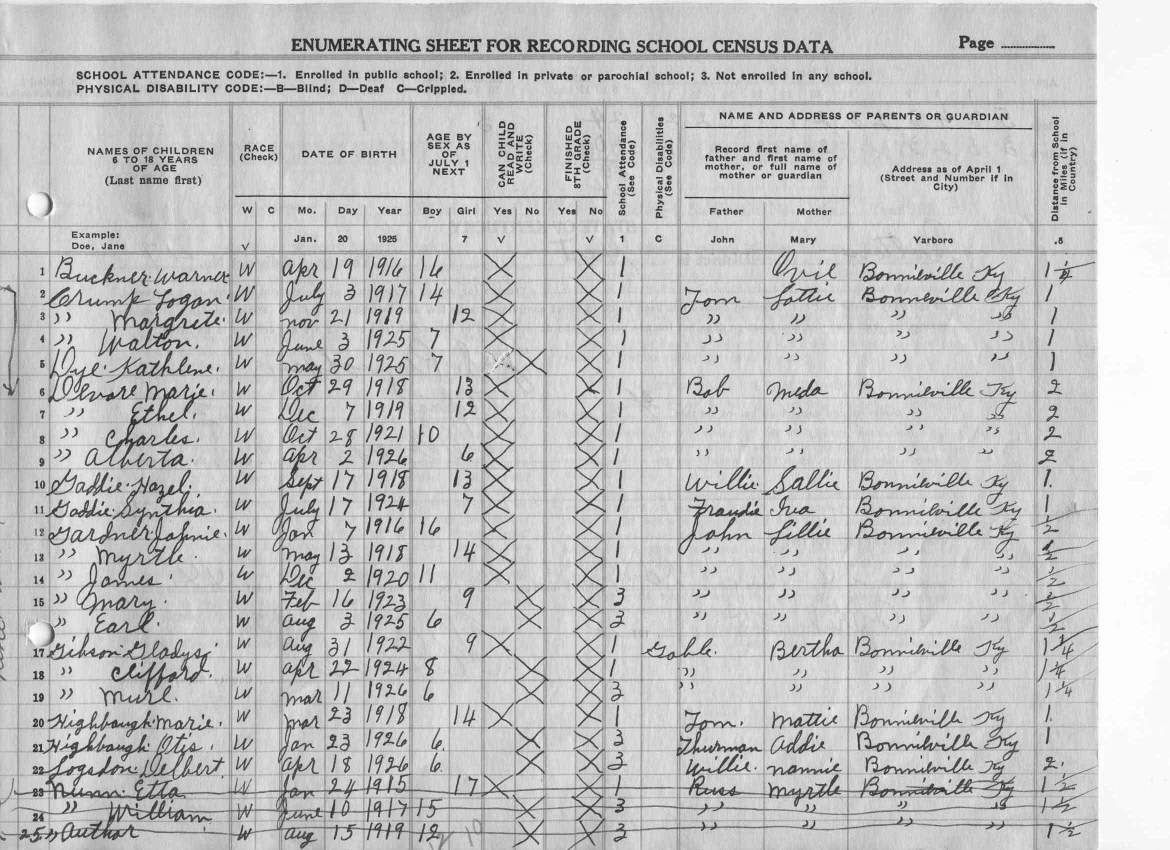 ENUMERATING SHEET FOR RECORDING SCHOOL CENSUS DATA Page
SCHOOL ATTENDANCE CODE:—1. Enrolled in public school; 2. Enrolled in private or parochial school; 3. Not enrolled in any school.
PHYSICAL DISABILITY CODE:—B—Blind; D—Deaf C—Crippled.
NAMES OF CHILDREN 6 TO 18 YEARS OF AGE (Last name first) RACE (Check) DATE OF BIRTH AGE BY SEX AS OF JULY 1 NEXT CAN CHILD READ AND WRITE (Check) FINISHED 8TH GRADE (Check) School Attendance (See Code) Physical Disabilities (See Code) NAME AND ADDRESS OF PARENTS OR GUARDIAN Distance from School in Miles (if in Country)
Record first name of father and first name of mother, or full name of mother or guardian Address as of April 1 (Street and Number if in City)
W C Mo. Day Year Boy Girl Yes No Yes No Father Mother
Example: Doe, Jane V Jan. 20 1925 7 V V 1 C John Mary Yarboro .8
1 Buckner Warner W Apr 19 1916 16 X X 1 Ovil Bonnieville Ky 1 1/2
2 Crump Logan W July 3 1917 14 X X 1 Tom Lottie Bonneville Ky 1
3 " Margrete W Nov 21 1919 12 X X 1 " " " " 1
4 " Walton W June 3 1925 7 X X 1 " " " " 1
5 Dye Kathlene W May 30 1925 7 X X 1 " " " " 1
6 Devore Marie W Oct 29 1918 13 X X 1 Bob Meda Bonnieville Ky 2
7 " Ethel W Dec 7 1919 12 X X 1 " " " " 2
8 " Charles W Oct 28 1921 10 X X 1 " " " " 2
9 " Alberta W Apr 2 1926 6 X X 1 " " " " 2
10 Gaddie Hazel W Sept 17 1918 13 X X 1 Willie Sallie Bonnieville Ky 1
11 Gaddie Synthia W July 17 1924 7 X X 1 Iva Bonnieville Ky 1
12 Gardner Johnie W Jan 7 1916 16 X X 1 John Lillie Bonnieville Ky 1/2
13 " Myrtle W May 13 1918 14 X X 1 " " " " 1/2
14 " James W Dec 2 1920 11 X X 1 " " " " 1/2
15 " Mary W Feb 16 1923 9 X X 3 " " " " 1/2
" Earl W Aug 3 1925 6 X X 3 " " " " 1/2
17 Gibson Gladys W Aug 31 1922 9 X X 1 Goble Bertha Bonnieville Ky 1 1/4
18 " Clifford W Apr 22 1924 8 X X 1 " " " " 1 1/4
19 " Murl W Mar 11 1926 6 X X 3 " " " " 1 1/4
20 Highbaugh Marie W Mar 23 1918 14 X X 1 Tom Mattie Bonnieville Ky 1
21 Highbaugh Otis W Jan 23 1926 6 X X 3 Thurman Addie Bonnieville Ky 1
22 Logsdon Delbert W Apr 18 1926 6 X X 3 Willie Nannie Bonnieville Ky 2
23 Nunn Etta W Jan 24 1915 17 X X 1 Russ Myrtle Bonnieville Ky 1 1/2
24 " William W June 10 1917 15 X X 3 " " " " 1 1/2
25 " Author W Aug 15 1919 12 X X 3 " " " " 1 1/2